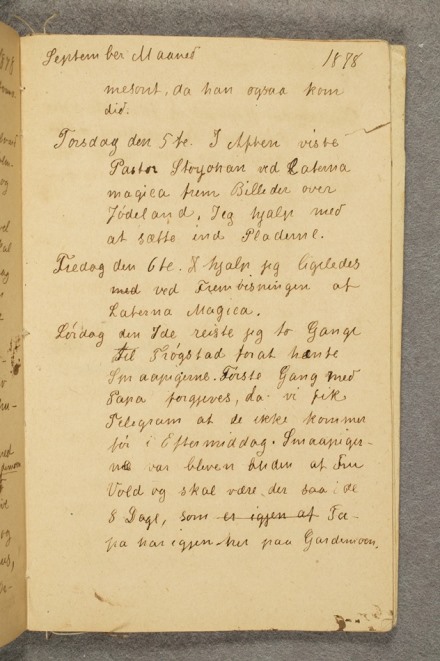 September Maaned 1878
mesont, da han ogsaa kom
did.
Torsdag den 5te. I Aften viste
Pastor Stoyohan ved Laterna
magica frem Billeder over
Jødeland. Jeg hjalp med
at sætte ind Pladerne.
Fredag den 6te. I hjalp jeg ligeledes
med ved Fremvisningen af
Laterna Magica.
Lördag den 7de reiste jeg to Gange
til Trøgstad forat hænte
Smaapigerne. Første Gang med
Papa forgjeves, da vi fik
Telegram at de ikke kommer
før i Eftermiddag. Smaapiger-
ne var bleven buden af Fru
Vold og skal være der saa i de
8 Dage, som er igjen af Pa-
pa har igjen her paa Gardemoen.